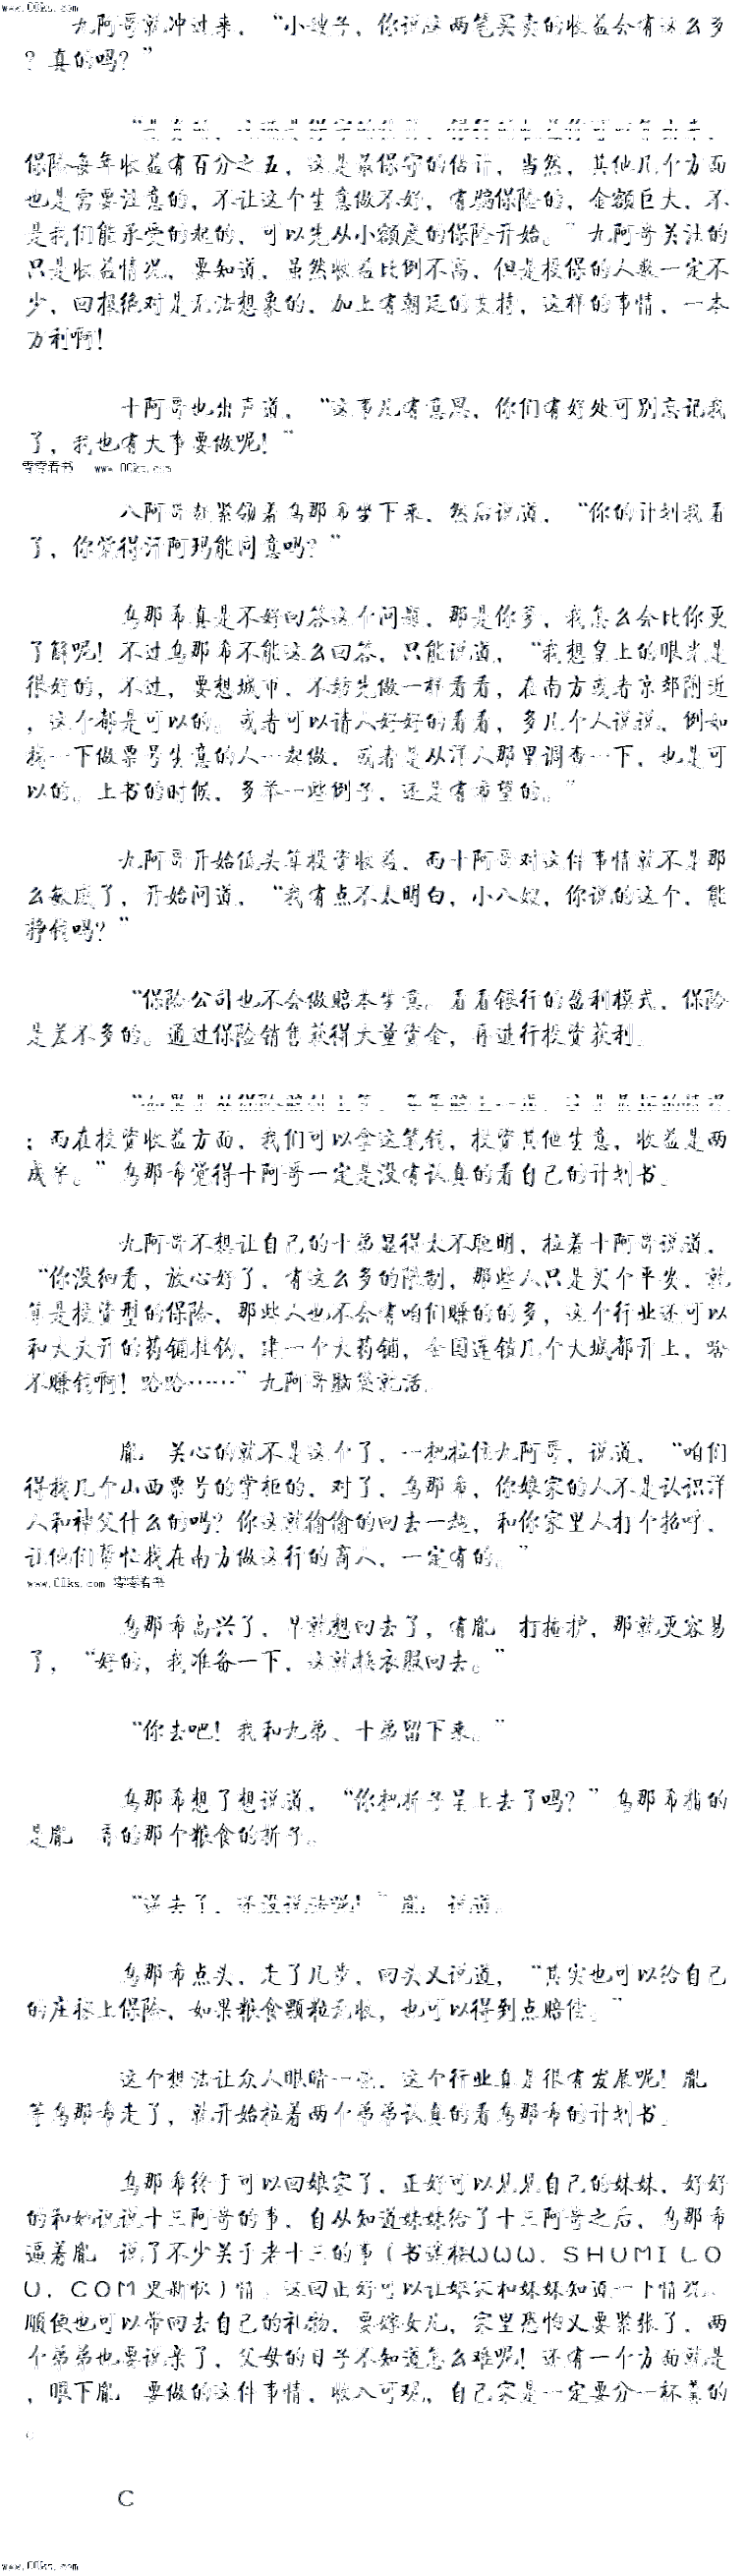 www.00ks.com
九阿哥就冲过来，“小嫂子，你说这两笔买卖的收益会有这么多
？真的吗？”
保险每年收益有百分之五，这是最保守的估计，当然，其他几个方面
也是需要注意的，不让这个生意做不好，有骗保险的，金额巨大，不
是我们能承受的起的，可以先从小额度的保险开始。”九阿哥关注的
只是收益情况，要知道，虽然收益比例不高，但是投保的人数一定不
少，回报绝对是无法想象的，加上有朝廷的支持，这样的事情，一本
万利啊！
十阿哥也出声道，“这事儿有意思，你们有好处可别忘记我
了，我也有大事要做呢！”
零零看书 www.00ks.com
八阿哥赶紧领着乌那希坐下来，然后说道，“你的计划我看
了，你觉得汗阿玛能同意吗？”
乌那希真是不好回答这个问题，那是你爹，我怎么会比你更
了解呢！不过乌那希不能这么回答，只能说道，“我想皇上的眼光是
很好的，不过，要想成事，不妨先做一样看看，在南方或者京郊附近
，这个都是可以的。或者可以请人好好的看看，多几个人说说，例如
找一下做票号生意的人一起做，或者是从洋人那里调查一下，也是可
以的。上书的时候，多举一些例子，还是有希望的。”
九阿哥开始低头算投资收益，而十阿哥对这件事情就不是那
么敏感了，开始问道，“我有点不太明白，小八嫂，你说的这个，能
挣钱吗？”
“保险公司也不会做赔本生意。看看银行的盈利模式，保险
是差不多的。通过保险销售获得大量资金，再进行投资获利。
；而在投资收益方面，我们可以拿这笔钱，投资其他生意，收益是两
成字。”乌那希觉得十阿哥一定是没有认真的看自己的计划书。
九阿哥不想让自己的十弟显得太不聪明，拉着十阿哥说道，
“你没细看，放心好了，有这么多的限制，那些人只是买个平安，就
算是投资型的保险，那些人也不会有咱们赚的的多，这个行业还可以
和大夫开的药铺挂钩，建一个大药铺，全国连锁几个大城都开上，啥
不赚钱啊！哈哈……”九阿哥脑袋就活。
胤 关心的就不是这个了，一把拉住九阿哥，说道，“咱们
得找几个山西票号的掌柜的，对了，乌那希，你娘家的人不是认识洋
人和神父什么的吗？你这就偷偷的回去一趟，和你家里人打个招呼，
让他们帮忙找在南方做这行的商人，一定有的。”
www.00ks.com 零零看书
乌那希高兴了，早就想回去了，有胤 打掩护，那就更容易
了，“好的，我准备一下，这就换衣服回去。”
“你去吧！我和九弟、十弟留下来。”
乌那希想了想说道，“你把折子呈上去了吗？”乌那希指的
是胤 写的那个粮食的折子。
“递去了，还没说法呢！”胤 说道。
乌那希点头，走了几步，回头又说道，“其实也可以给自己
的庄稼上保险，如果粮食颗粒无收，也可以得到点赔偿。”
这个想法让众人眼睛一亮，这个行业真是很有发展呢！胤
等乌那希走了，就开始拉着两个弟弟认真的看乌那希的计划书。
乌那希终于可以回娘家了，正好可以见见自己的妹妹，好好
的和她说说十三阿哥的事，自从知道妹妹给了十三阿哥之后，乌那希
逼着胤 说了不少关于老十三的事（书迷楼WWW．ＳＨＵＭＩＬＯ
Ｕ．ＣＯＭ更新快）情，这回正好可以让娘家和妹妹知道一下情况。
顺便也可以带回去自己的礼物，要嫁女儿，家里恐怕又要紧张了，两
个弟弟也要说亲了，父母的日子不知道怎么难呢！还有一个方面就是
，眼下胤 要做的这件事情，收入可观，自己家是一定要分一杯羹的
。
C
www.00ks.com